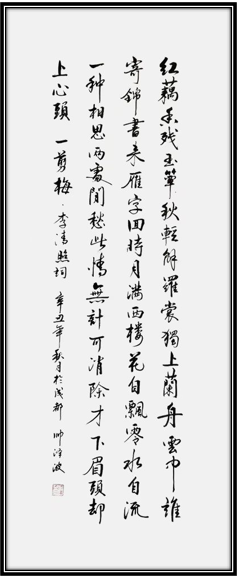 红藕香残玉簟秋轻解羅裳獨上蘭舟雲中誰
寄錦書来雁字回時月满西楼花自飄零水自流
一种相思两處閒愁此情無計可消除才下眉頭却
上心頭 一剪梅·李清照词 辛丑年秋月於成都 帅泽波